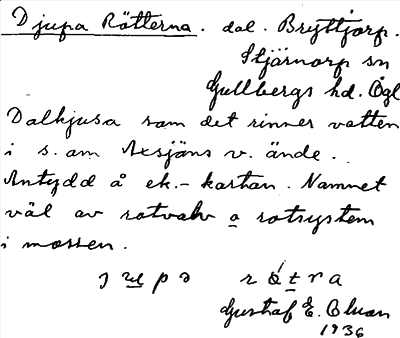 Djupa Rötterna. dal. Bryttjorp.
Stjärnorp sn
Gullbergs hd. Ögl
Dalkjusa som det rinner vatten
i s. om Axsjöns v. ände.
Antydd å ek.-kartan. Namnet
väl av rotvalv o rotsystem
i mossen.
Gustaf E. Olson
1936